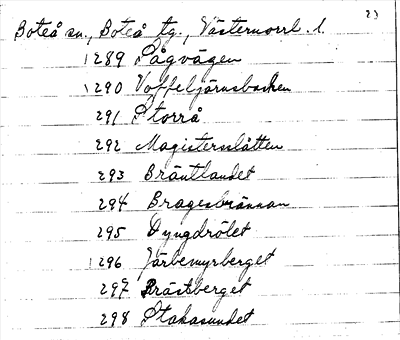 23
Boteå sn., Boteå tg., Västernorrl. l.
1289 Sågvägen
1290 Voffeljärnsbacken
291 Storrå
292 Magisterslåtten
293 Bräntlandet
294 Bragesbrännan
295 Dyngdrölet
1296 Järbemyrberget
297 Brästberget
298 Stakasundet